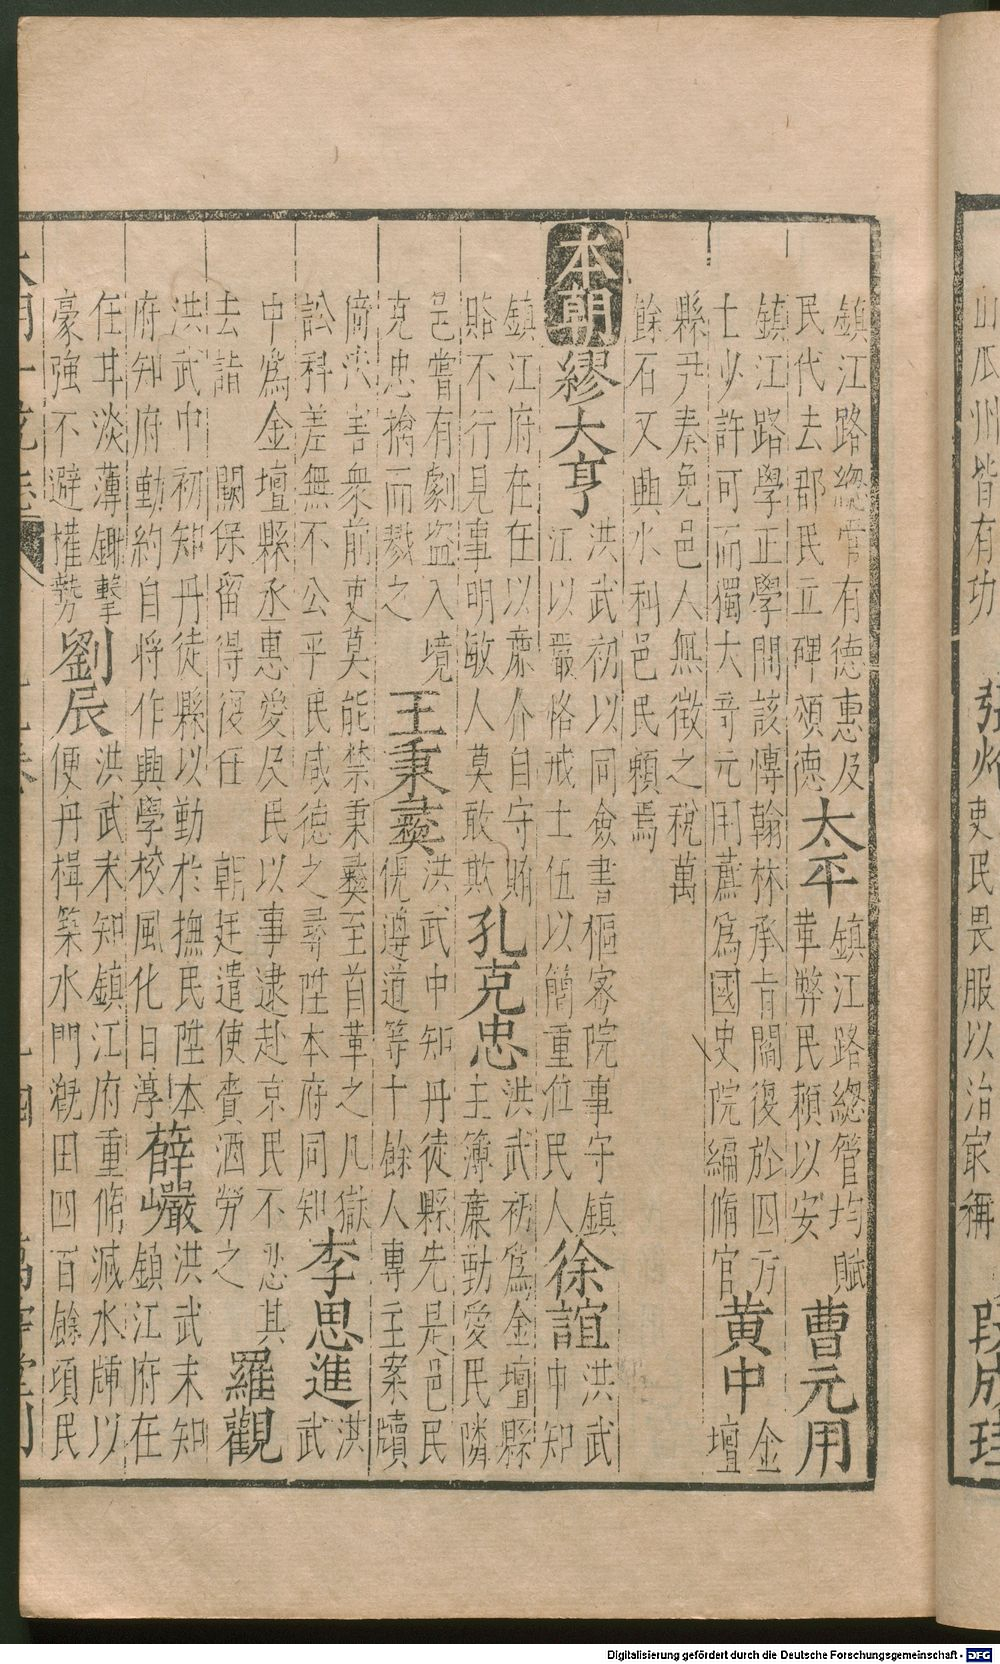 山瓜州皆有功
吏民畏服以治㝡稱
段成珪
鎮江路緫管有德惠及
民代去郡民立碑頌德
太平
鎮江路緫管均賦
革弊民頼以安
曹元用
鎮江路學正學問該博翰林承㫖閻復於四方
士少許可而獨大奇元用薦爲國史院編脩官
黄中
金
壇
縣尹奏免邑人無徵之稅萬
餘石又興水利邑民頼焉
本朝
繆大亨
洪武初以同僉書樞密院事守鎮
江以嚴恪戒士伍以簡重涖民人
徐誼
洪武
中知
鎮江府在任以廉介自守賄
賂不行見事明敏人莫敢欺
孔克忠
洪武初爲金壇縣
主簿廉勤愛民隣
邑嘗有劇盗入境
克忠擒而戮之
王秉彝
洪武中知丹徒縣先是邑民
倪遵道等十餘人專主案牘
倚法害衆前吏莫能禁秉彝至首革之凡獄
訟科差無不公平民咸德之尋陞本府同知
李思進
洪
武
中爲金壇縣丞惠愛及民以事逮赴京民不忍其
去詣 闕保留得復任 朝廷遣使賫酒勞之
羅觀
洪武中初知丹徒縣以勤於撫民陞本
府知府勤約自將作興學校風化日淳
薛巗
洪武末知
鎮江府在
任耳淡薄鋤擊
豪強不避權勢
劉辰
洪武末知鎮江府重脩减水牐以
便丹楫築水門漑田四百餘頃民
Digitalisierung gefördert durch die Deutsche Forschungsgemeinschaft - DFG